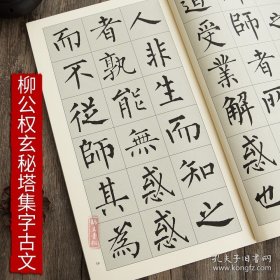 道受業解惑也
人非生而知之
者孰能無惑惑
而不從師其為
柳公权玄秘塔集字古文
孔夫子旧书网